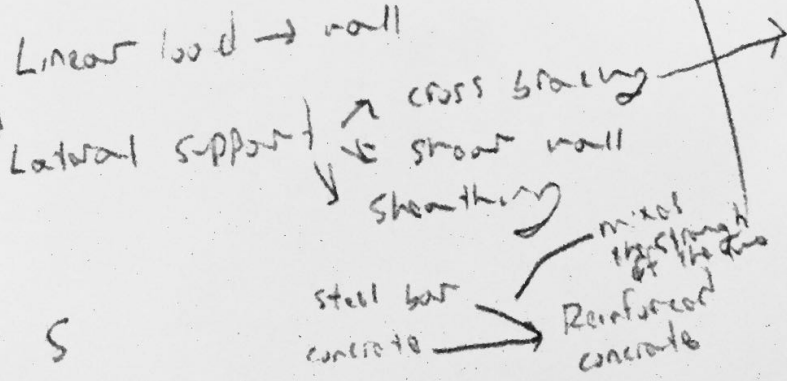 Linear load → wall
Lateral support ↗ cross bracing →
← shear wall
↘ sheathing
mixes
the strength
of the two
steel bar
concrete → Reinforced
concrete
S